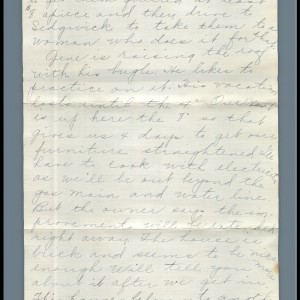 of apiece and they drive to
Sedgwick to take them to a
woman who does it for that
Gene is raising the roof
with his bugle. He likes to
practice on it. His vacation
lasts until the 4" Our rent
is up here the 8" so that
gives us 4 days to get our
furniture straightened. We
have to cook with electricity
as we'll be out beyond the
gas main and water line.
But the owner says the im-
provements will be
right away. The house is
brick and seems to be nice
enough Will tell you
about it after we get in.
This house